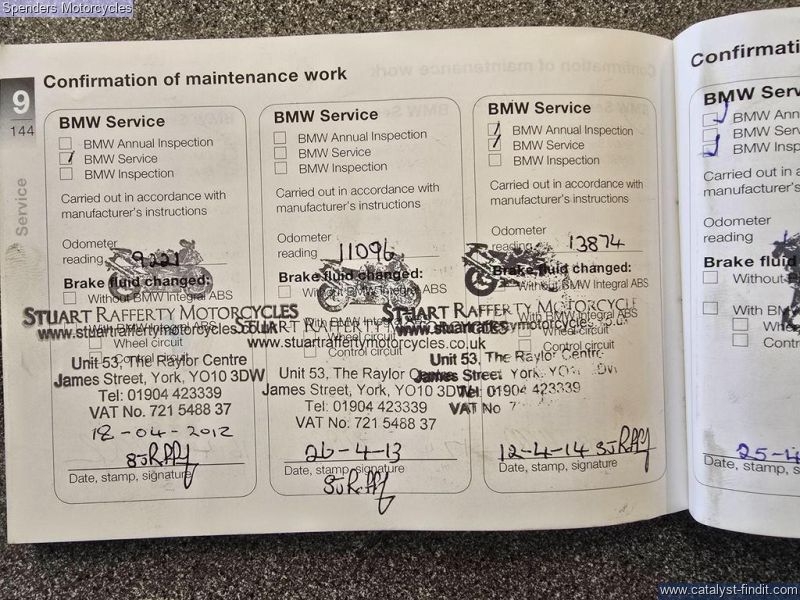 Spenders Motorcycles
Confirmation of maintenance work
9
144
Service
BMW Service
BMW Annual Inspection
BMW Service
BMW Inspection
Carried out in accordance with
manufacturer's instructions
Odometer
reading 9221
Brake fluid changed:
Without BMW Integral ABS
With BMW Integral ABS
Wheel circuit
Control circuit
STUART RAFFERTY MOTORCYCLES
www.stuartraffertymotorcycles.co.uk
Unit 53, The Raylor Centre
James Street, York, YO10 3DW
Tel: 01904 423339
VAT No. 721 5488 37
18-04-2012
Date, stamp, signature
BMW Service
BMW Annual Inspection
BMW Service
BMW Inspection
Carried out in accordance with
manufacturer's instructions
Odometer
reading 11096
Brake fluid changed:
Without BMW Integral ABS
With BMW Integral ABS
Wheel circuit
Control circuit
STUART RAFFERTY
www.stuartraffertymotorcycles.co.uk
Unit 53, The Raylor Centre
James Street, York, YO10 3DW
Tel: 01904 423339
VAT No. 721 5488 37
26-4-13
Date, stamp, signature
BMW Service
BMW Annual Inspection
BMW Service
BMW Inspection
Carried out in accordance with
manufacturer's instructions
Odometer
reading 13874
Brake fluid changed:
Without BMW Integral ABS
With BMW Integral ABS
Wheel circuit
Control circuit
STUART RAFFERTY MOTORCYCLE
Unit 53, The Raylor Centre
James Street, York,
Tel: 01904 423339
VAT No
12-4-14
Date, stamp, signature
Confirmati
BMW Serv
BMW Ann
BMW Serv
BMW Insp
Carried out in
manufacturer's
Odometer
reading
Brake fluid
Without
With B
Whe
Cont
25-4
Date, stamp,
www.catalyst-findit.com